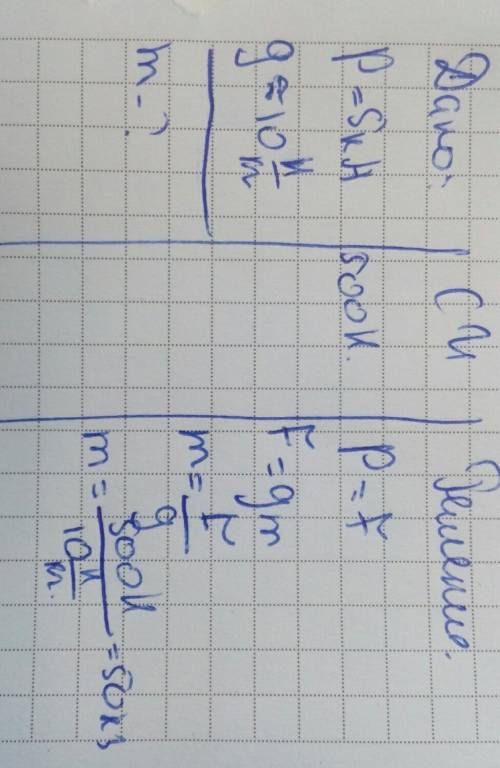 Дано:
P = 5кН
g ≈ 10 Н/m
m - ?
СИ
500Н.
Решение.
P = F
F = gm
m = F/g
m = 500Н/10 Н/m. = 50кг